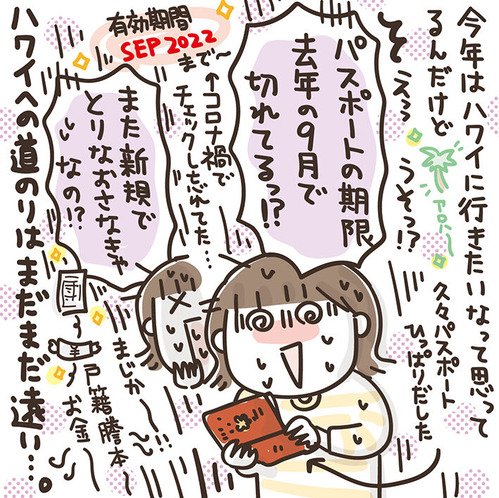 今年はハワイに行きたいなって思って
るんだけど
アロハ〜
久々パスポート
ひっぱりだした
そ
えぇっ
うそっ!?
パスポートの期限
去年の9月で
切れてるっ!?
有効期間
SEP 2022
まで〜
↑コロナ禍で
チェックし忘れてた…
また新規で
とりなおさなきゃ
なの!?
まじかー!!
戸籍謄本〜
お金〜
ハワイへの道のりはまだまだ遠い…。